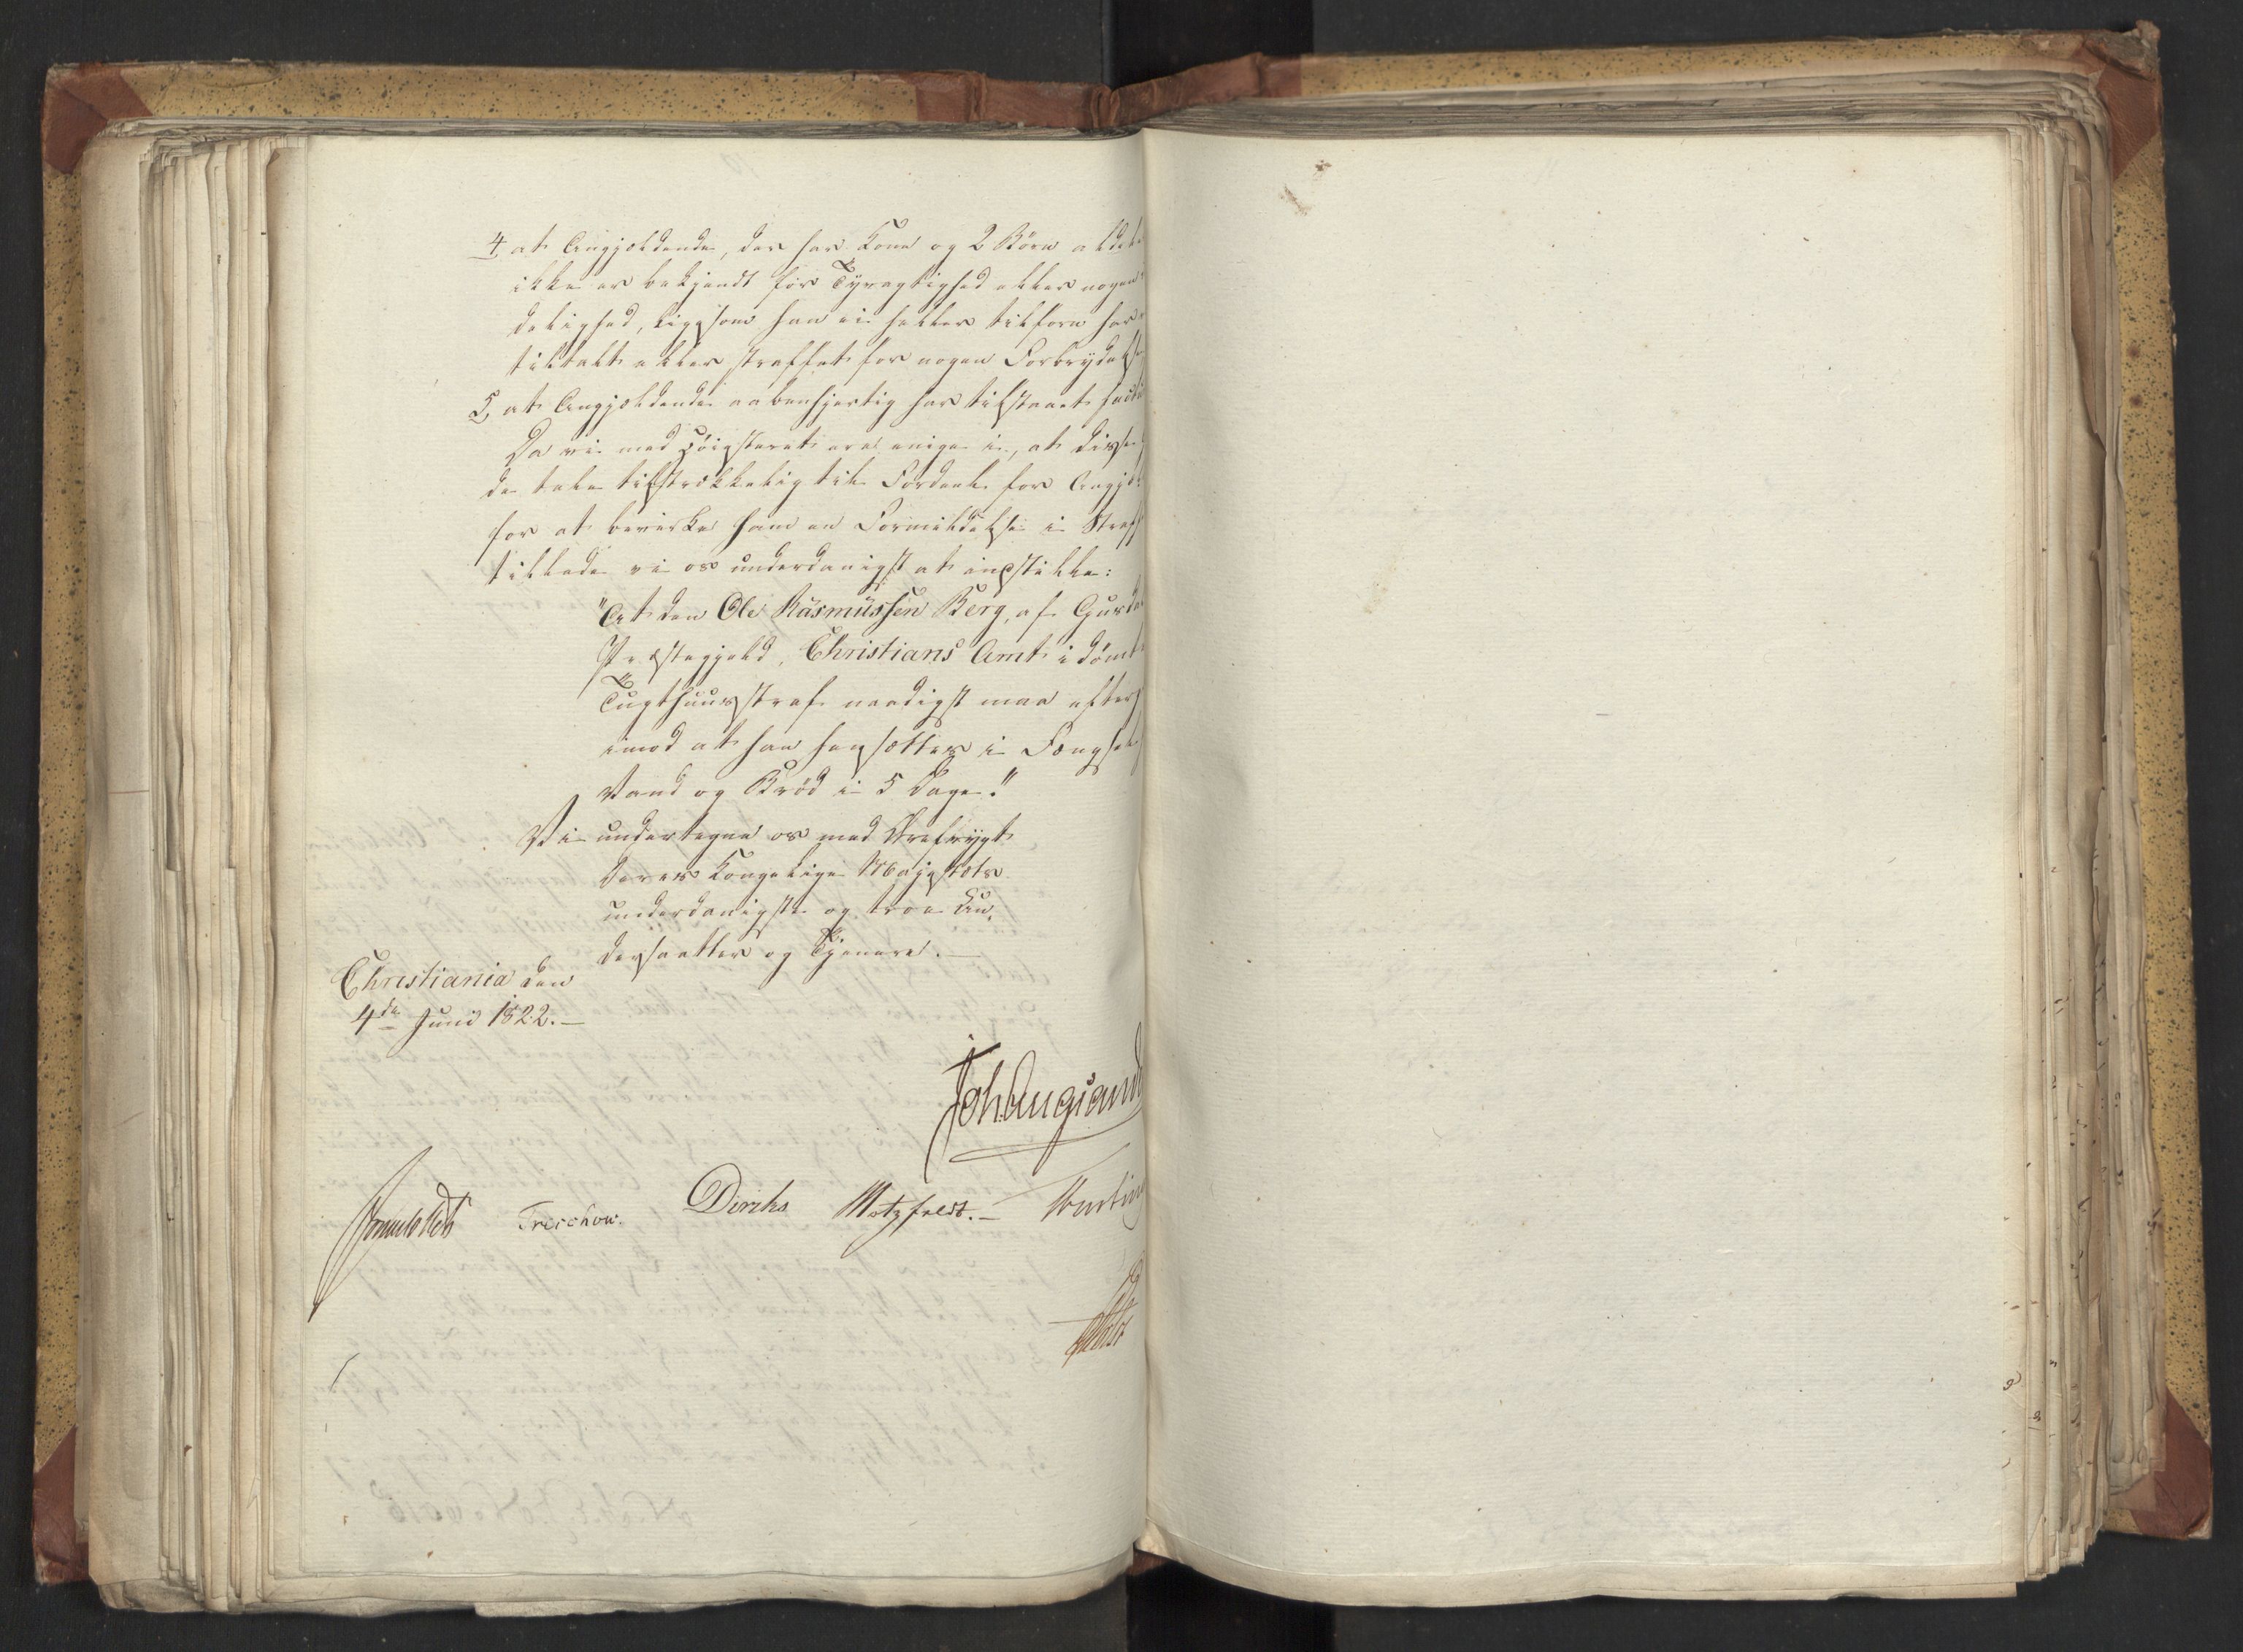 4, at Angjeldende, der har Kone og 2 Börn
ikke er bekjendt for Tyvagtighed eller nogen
delighed, ligesom han ei heller tilforn har
tiltalt eller straffet for nogen Forbrydelse
5, at Angjeldende aabenhjertig har tilstaaet
Da vi med Höiesteret ere enige i, at disse
de tale tilstrækkelig til Fordeel for
for at bevirke ham en Formildelse i Straf
tillade vi os underdanigst at indstille:
"At den Ole Rasmüssen Berg, af
Præstegjeld, Christians Amt idömt
Tugthuusstraf naadigst maa efter
imod at han hensættes i Fængsel
Vand og Bröd i 5 Dage."
Vi undertegne os med Ærefrygt
Deres Kongelige Majestæts
underdanigste og troe Un-
dersaatter og Tjenere.
Christiania den
4de Juni 1822.
Joh. Aug: Sand
Sommerhielm Treschow. Diriks Motzfeldt.
Holst